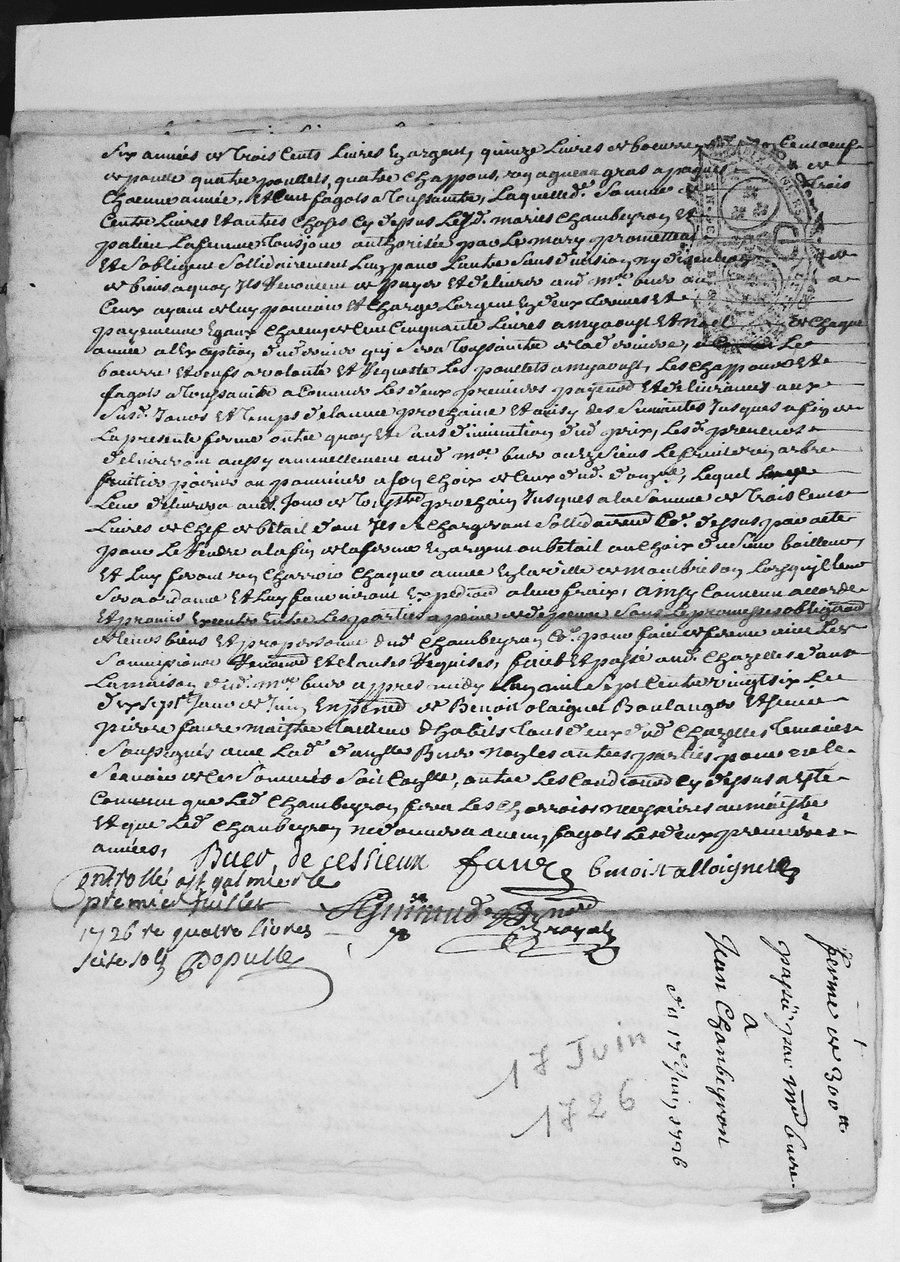 six années de trois cents livres en argent, quinze livres de boeurre cent oeufs
de poulle quatre poullets, quatre chappons, un agneau gras a paques de
chacune année, et cent fagots a toussaints, laquelle ditte somme de trois
cents livres et autres choses cy dessus lesd. mariés Chambeyron et
palieu la femme tousjour authorisée par le mary promettent
et sobligent sollidairement lun pour lautre sans division ny
de biens a quoy ils renoncent de payer et delivrer aud. Mre. buer ou a
ceux ayant de luy pouvoir et charge largent en deux termes et
payements egaux chacun de cent cinquante livres a myaoust et noel de chaque
année a lexception du dernier qui sera toussaints de lad. derniere, les
boeurre et oeufs a volonté et requette les poullets a myaoust, les chappons et
fagots a toussaints a commencer les deux premiers payements et delivrances aux
susd. jours et temps de lannée prochaine et ainsy des suivantes jusques a fin de
la presente ferme outre quoy et sans diminution dud. prix, lesd. preneurs
delivreront aussy annuellement aud. Mre. buer le fruit dun arbre
fruitier poirier ou pommier a son choix de ceux dud. domaine, lequel
leur delivrera au jour de toussts prochain jusques a la somme de trois cents
livres de chef de bétail dont ils se chargeront sollidairement Co. dessus par acte
pour le rendre a la fin de la ferme en argent ou bétail au choix du sieur bailleur,
et luy feront un charroir chaque année en la ville de montbrison lorsquil leur
sera ordonné et luy fourniront expedition a leur fraix, ainsy convenu accordé
et promis executer entre les parties a peine de depens sous les promesses obligaons
de leurs biens et propersonne dud. Chambeyron Co. pour fait de ferme avec les
soumissions renonons et clauses requises, fait et passé aud. Chazelles dans
la maison dud. Mre. buer appres midy lan mil sept cents vingt six le
dix sept jour de juin en presence de Benoit olaignet Boulanger et sieur
pierre faure maistre tailleur dhabits tous deux dud. Chazelles temoins
soussignés avec led. Buer non les autres parties pour ne le
scavoir de ce sommés outre les condions cy dessus a esté
convenu que led. Chambeyron fera les charrois necessaires au
et que led. Chambeyron ne donnera aucun, fagots les deux premieres
années,
Buer de cessieux faure benoist alloignet
Controllé a St galmier le
premier juillet
1726 re quatre livres
seise sols Populle
Guimud
royal
ferme de 300 tt
passé par Mre buer
a
Jean Chanbeyron
du 17e Juin 1726
17 Juin
1726